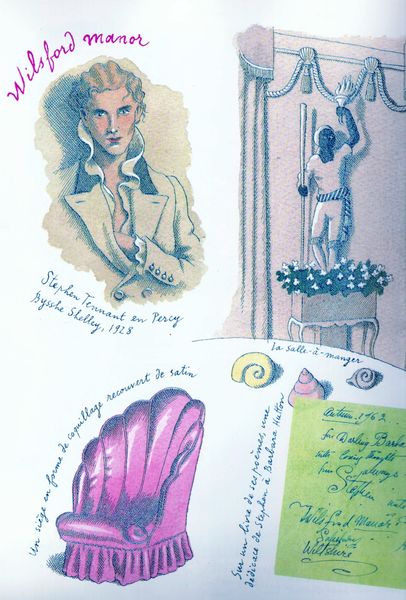 Wilsford manor
Stephen Tennant en Percy
Bysshe Shelley, 1928
La salle-à-manger
Un siège en forme de coquillage recouvert de satin
Sur un livre de ses poèmes, une
dédicace de Stephen à Barbara Hutton
Autumn 1962
for Darling Barba
with loving thoughts
from
always
Stephen
Wilsford Manor
Wiltshire